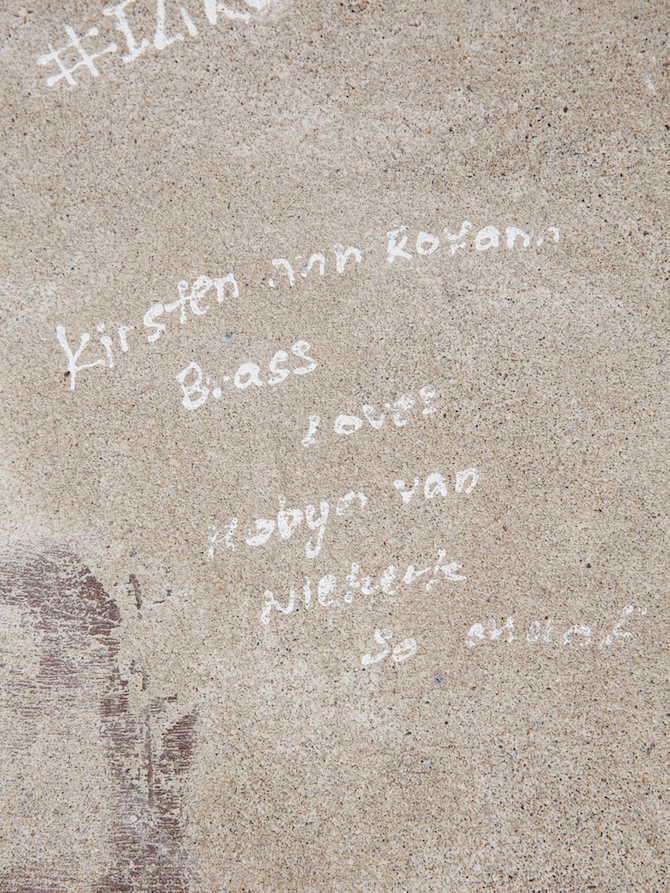 Kirsten Ann Royann
Brass
Loves
Robyn van
Niekerk
So much